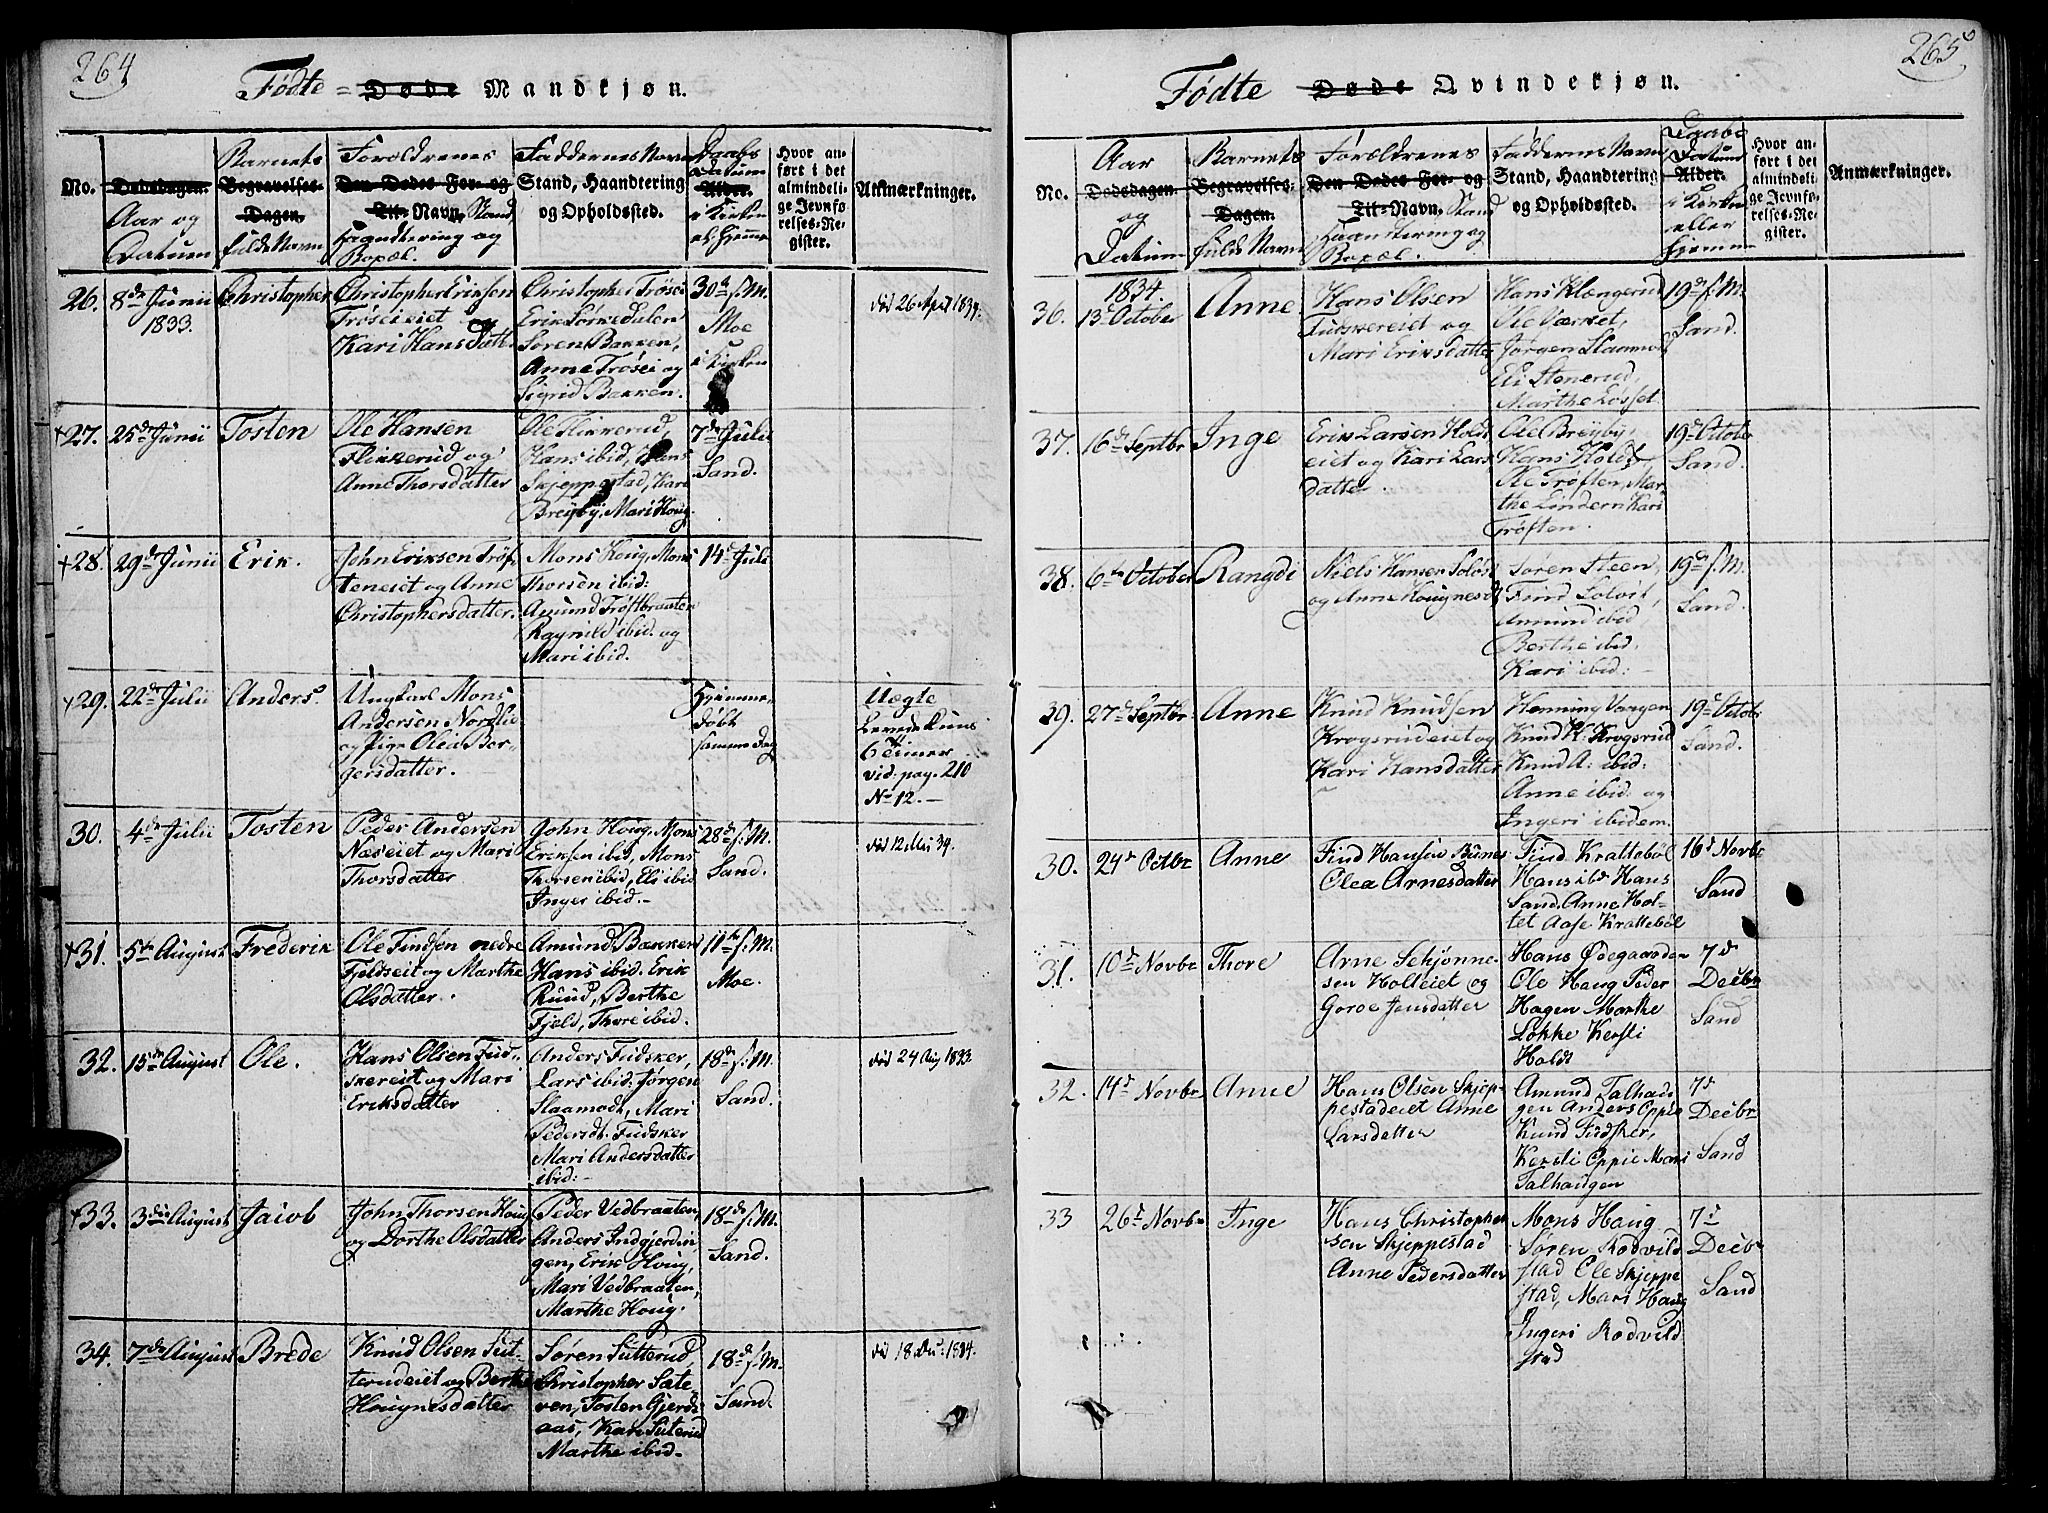 264
Fødte = Døde Mandkjøn.
No.
Dødsdagen.
Aar og
Datum
Barnets
Begravelses-
Dagen.
fulde Navn
Foroldrenes
Den Dødes For- og
Til-Navn, Stand,
Haandtering og
Bopæl.
Faddernes Navn
Stand, Haandtering
og Opholdssted.
Daabs
Datum
Alder.
i Kirken
el. Hjemme
Hvor an-
ført i det
almindeli-
ge Jevnfø-
relses-Re-
gister.
Anmærkninger.
26.
8de Junii
1833.
Christopher
Christopher Eriksen
Trøseieiet og
Kari Hansdatter
Christopher Trøsei
Erik Lørkedalen
Søren Bakken,
Anne Trøsei og
Sigrid Bakken.
30d s. M.
Moe
i Kirken
død 26 April 1834.
+27.
25de Junii
Tosten
Ole Hansen
Flikkerud og
Anne Thorsdatter
Ole Flikkerud,
Hans ibid, Hans
Skjeppestad, Kari
Breyby, Mari Houg.
7de Julii
Sand.
+28.
29de Junii
Erik.
John Eriksen Trøf-
teneiet og Anne
Christophersdatter.
Mons Houg, Mons
Thorsen ibid:
Amund Trøftbraaten
Ragnild ibid. og
Mari ibid.
14de Juli
+29.
22de Julii
Anders
Ungkarl Mons
Andersen Nordlie
og Pige Olea Bor-
gersdatter.
Hjemme
døbt
samme Dag
Uægte
Levede kuns
6 Timer
vid. pag. 210
No 12. —
30.
4de Julii
Tosten
Peder Andersen
Næseiet og Mari
Thorsdatter
John Houg, Mons
Eriksen ibid, Mons
Thorsen ibid, Eli ibid
Inger ibid. —
28de s. M.
Sand.
død 12 Mai 34.
+31.
5te August
Frederik
Ole Findsen nedre
Fjeldseit og Marthe
Olsdatter.
Amund Bakken
Hans ibid. Erik
Ruud, Berthe
Fjeld, Thore ibid.
11te s. M.
Moe.
32.
15de August
Ole.
Hans Olsen Fud-
skereiet og Mari
Eriksdatter
Anders Fudsker,
Lars ibid. Jørgen
Slaamodt, Mari
Pedersdt. Fudsker
Mari Andersdatter
ibid: —
18de s. M.
Sand.
død 24 Aug 1833.
+33.
3die August
Jacob
John Thorsen Houg
og Dorthe Olsdatter
Peder Vedbraaten,
Anders Indgjerdin
gen, Erik Houg,
Mari Vedbraaten,
Marthe Houg.
18de s. M.
Sand.
34.
7de August
Brede
Knud Olsen Sut-
terudeiet og Berthe
Hougnesdatter
Søren Sutterud,
Christopher Sate-
ven, Tosten Gjerds-
aas, Kari Suterud
Marthe ibid —
18de s. M.
Sand.
død 18 Dec. 1834.
265
Fødte Døde Qvindekjøn.
No.
Aar
Dødsdagen.
og
Datum
Barnets
Begravelses-
Dagen.
fulde Navn
Forældrenes
Den Dødes For- og
Til-Navn, Stand
Haandtering og
Bopæl.
Faddernes Navn
Stand, Haandtering
og Opholdssted.
Daabs
Datum
Alder.
i Kirken
eller
hjemme
Hvor an-
ført i det
almindeli-
ge Jevnfø-
relses-Re-
gister.
Anmærkninger.
36.
1834.
13d October
Anne
Hans Olsen
Fudskereiet og
Mari Eriksdatter
Hans Klængerud
Ole Værket,
Jørgen Slaamodt
Eli Stenerud,
Marthe Løsset
19de s. M.
Sand.
37.
16de Septbr
Inge
Erik Larsen Holdt
eiet og Kari Lars
datter.
Ole Breyby,
Hans Holdt
Ole Trøften, Mar-
the Lindern Kari
Trøften.
19d October
Sand.
38.
6te October
Rangdi
Niels Hansen Soløst
og Anne Hougnesd
Søren Steen,
Find Solvit,
Amund ibid,
Berthe ibid.
Kari ibid: —
19de s. M.
Sand.
39.
27de Septbr.
Anne
Knud Knudsen
Krogsrudeiet og
Kari Hansdatter
Henning Vangen
Knud H: Krogsrud
Knud A: ibid:
Anne ibid: og
Ingeri ibidem.
19d Octobr
Sand.
30.
24d Octbr
Anne
Find Hansen Bunes
Olea Arnesdatter
Find Krattebøl
Hans ibd Hans
Sand. Anne Hol-
tet Aase Krattebøl
16d Novbr
Sand
31.
10d Novbr
Thore
Arne Schjønne-
sen Holteiet og
Goroe Jensdatter
Hans Ødegaarden
Ole Haug Peder
Hagen Marthe
Løkke Kersti
Holdt
7d
Decbr
Sand
32.
14d Novbr
Anne
Hans Olsen Skjep-
pestadeiet Anne
Larsdatter
Amund Talhau-
gen Anders Oppie
Knud Fudsker,
Kersti Oppie Mari
Talhaugen
7d
Decbr
Sand
33
26d Novbr
Inge
Hans Christopher
sen Skjeppestad
Anne Pedersdatter
Mons Haug
Søren Rodvild
stad Ole Skjeppe
stad, Mari Haug
Ingeri Rodvild
stad
7d
Decbr
Sand